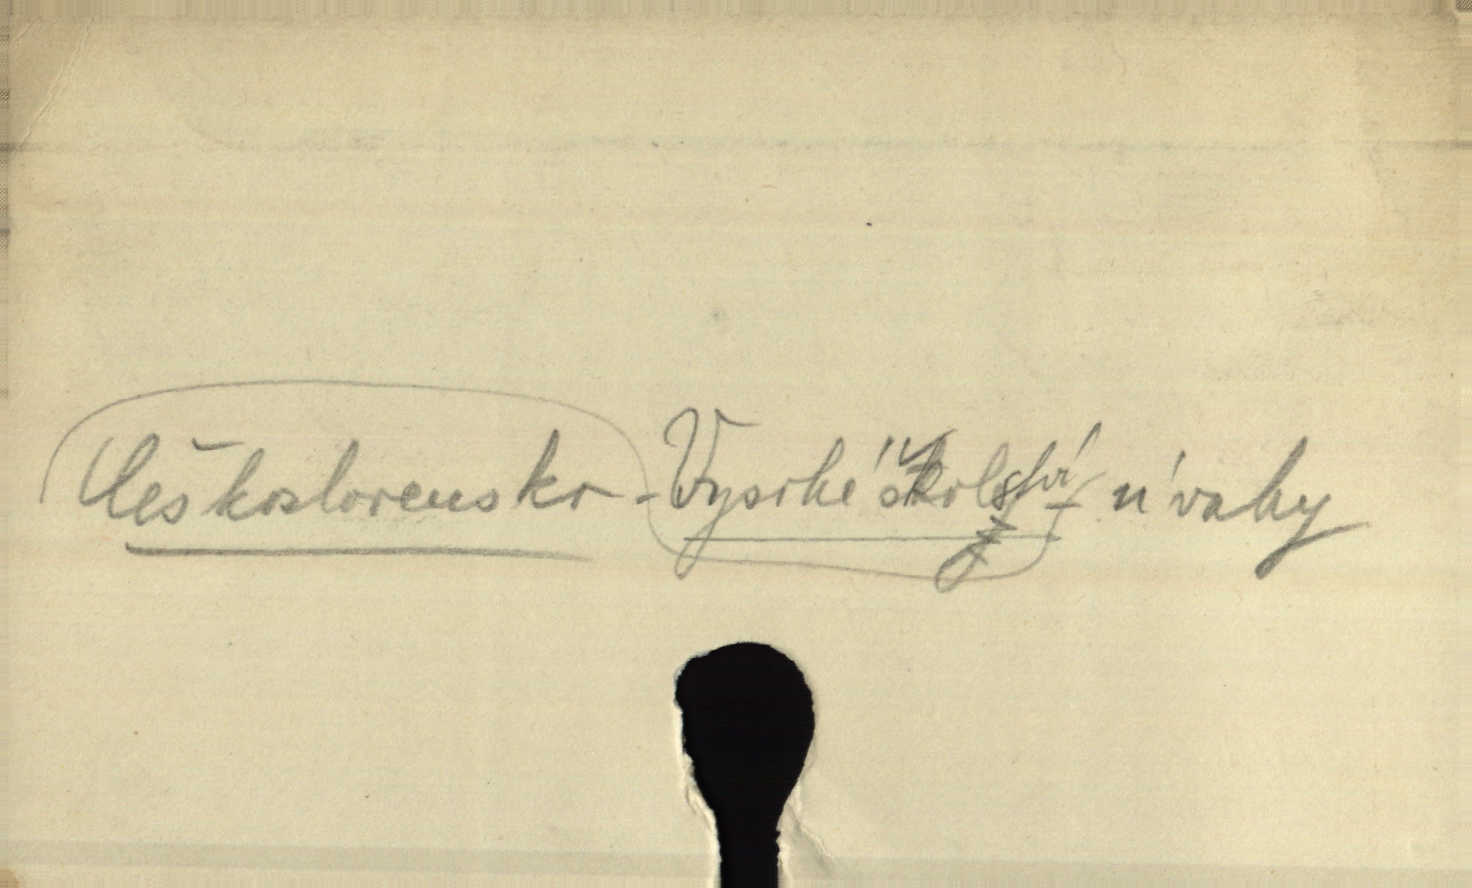 Československo - Vysoké školství - úvahy